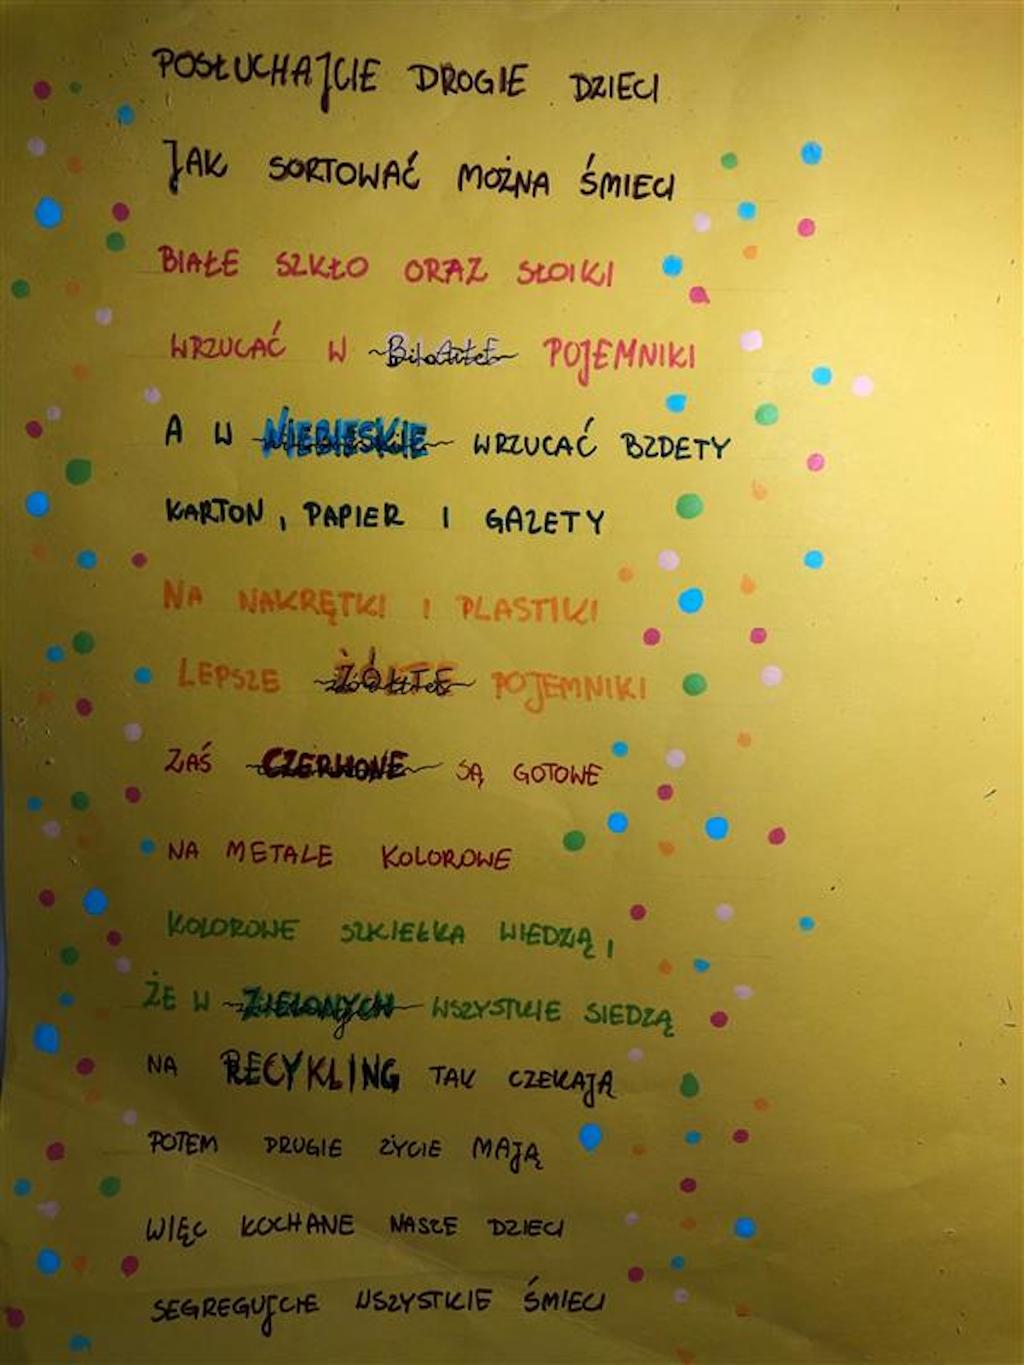 POSŁUCHAJCIE DROGIE DZIECI
JAK SORTOWAĆ MOŻNA ŚMIECI
BIAŁE SZKŁO ORAZ SŁOIKI
WRZUCAĆ W BIAŁE POJEMNIKI
A W NIEBIESKIE WRZUCAĆ BZDETY
KARTON, PAPIER I GAZETY
NA NAKRĘTKI I PLASTIKI
LEPSZE ŻÓŁTE POJEMNIKI
ZAŚ CZERWONE SĄ GOTOWE
NA METALE KOLOROWE
KOLOROWE SZKIEŁKA WIEDZĄ,
ŻE W ZIELONYCH WSZYSTKIE SIEDZĄ
NA RECYKLING TAK CZEKAJĄ
POTEM DRUGIE ŻYCIE MAJĄ
WIĘC KOCHANE NASZE DZIECI
SEGREGUJCIE WSZYSTKIE ŚMIECI